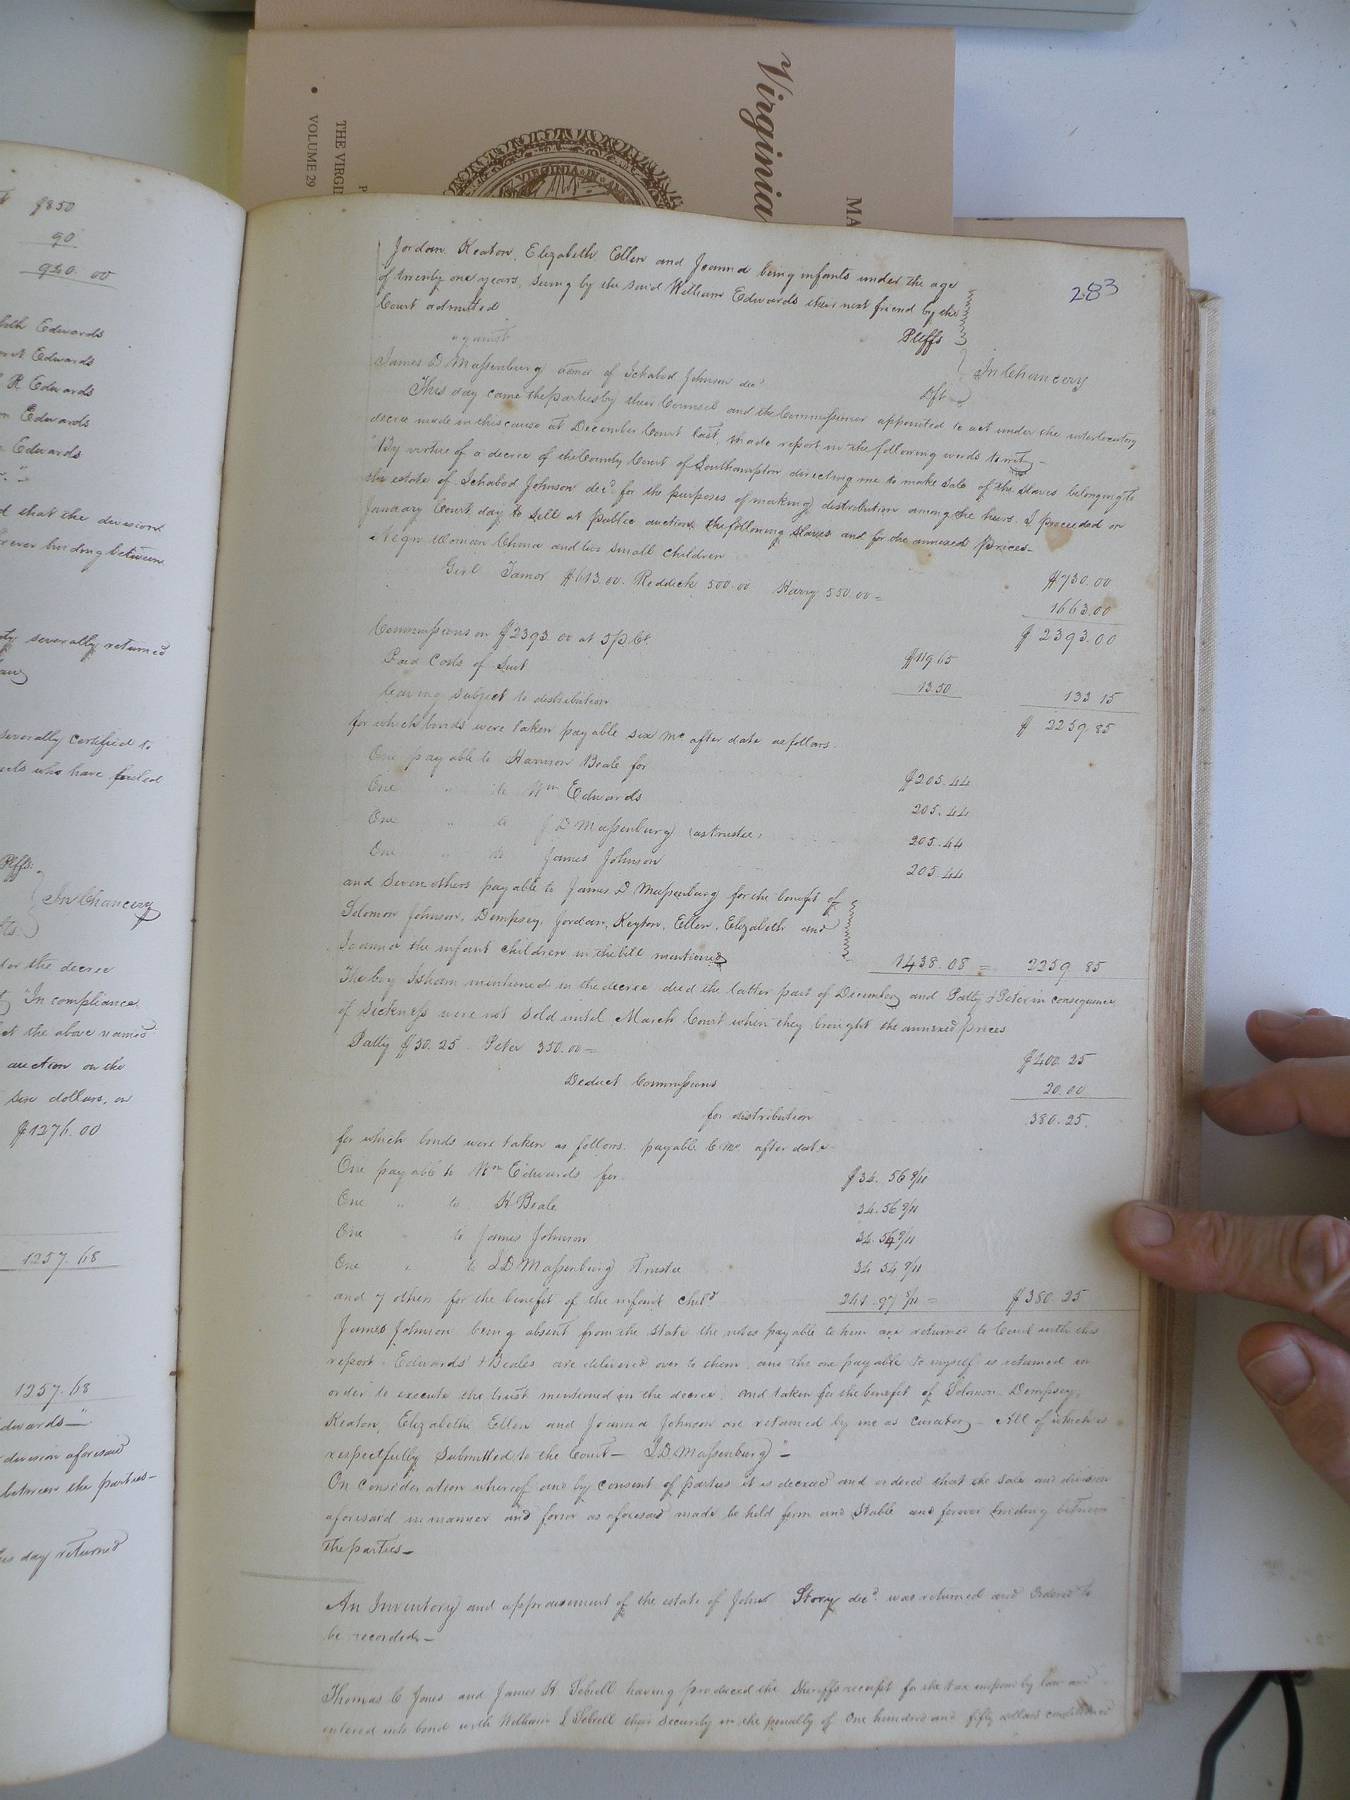 Virginia
MA
THE VIRGI
VOLUME 29
VIRGINIA
$850
90
920. 00
Edwards
Edwards
R Edwards
Edwards
Edwards
d that the division
forever binding between
severally returned
severally certified to
who have failed
Plffs.
In Chancery
the decree
In compliance
at the above named
auction on the
six dollars, or
$1276.00
1257.68
1257.68
Edwards—"
division aforesaid
between the parties—
this day returned
283
Jordan Keaton, Elizabeth Ellen and Joanna being infants under the age
of twenty one years, suing by the said William Edwards their next friend by the
Court admitted
Plffs
against
In Chancery
James D Massenburg admor of Ichabod Johnson decd
Dft
This day came the parties by their Counsel and the Commissioner appointed to act under the interlocutory
decree made in this cause at December Court last, made report in the following words to wit—
"By virtue of a decree of the County Court of Southampton directing me to make sale of the slaves belonging to
the estate of Ichabod Johnson decd for the purposes of making distribution among the heirs. I proceeded on
January Court day to sell at public auction the following slaves and for the annexed prices—
Negro Woman China and two small children $730.00
Girl Tamor $613.00 Reddick 500.00 Harry 550.00 = 1663.00
$2393.00
Commissions on $2393.00 at 5 p. Ct. $119 65
Paid Costs of Suit 13.50 133 15
leaving subject to distribution $2259.85
for which bonds were taken payable six mo after date as follows.
One payable to Harrison Beale for $205.44
One " to Wm Edwards 205.44
One " to J D Massenburg (as trustee) 205.44
One " to James Johnson 205.44
and seven others payable to James D Massenburg for the benefit of
Solomon Johnson, Dempsey, Jordan, Keyton, Ellen, Elizabeth and
Joanna the infant children in the bill mentioned 1438.08 = 2259 85
The boy Isham mentioned in the decree died the latter part of December and Patty & Peter in consequence
of sickness were not sold until March Court when they brought the annexed prices
Patty $50.25 Peter 350.00 = $400.25
Deduct Commissions 20.00
for distribution 380.25
for which bonds were taken as follows payable 6 mo. after date
One payable to Wm Edwards for $34.56 9/11
One " to H Beale 34.56 9/11
One " to James Johnson 34.54 9/11
One " to J D Massenburg Trustee 34 54 9/11
and 7 others for the benefit of the infant child 241.97 3/11 = $380.25
James Johnson being absent from the state the notes payable to him are returned to Court with this
report. Edwards & Beales are delivered over to them, and the one payable to myself is retained in
order to execute the trust mentioned in the decree: and taken for the benefit of Solomon Dempsey,
Keaton, Elizabeth Ellen and Joanna Johnson are retained by me as curator— All of which is
respectfully submitted to the Court— J D Massenburg"—
On consideration whereof and by consent of parties it is decreed and ordered that the sale and division
aforesaid in manner and form as aforesaid made be held firm and stable and forever binding between
the parties—
An Inventory and appraisement of the estate of John Story decd was returned and Ordered to
be recorded—
Thomas C Jones and James H Sebrell having produced the Sheriffs receipt for the tax imposed by law and
entered into bond with William J Sebrell their security in the penalty of one hundred and fifty dollars conditioned